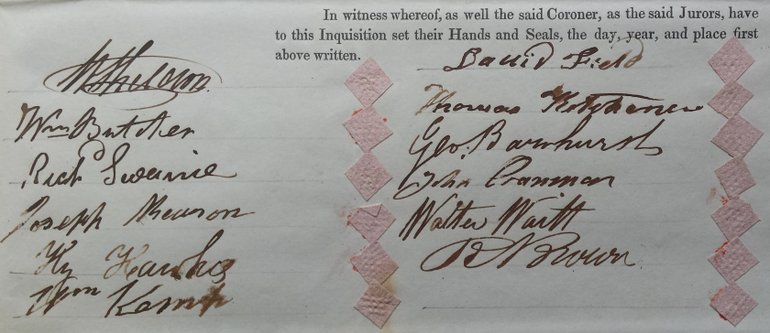 In witness whereof, as well the said Coroner, as the said Jurors, have
to this Inquisition set their Hands and Seals, the day, year, and place first
above written.
Wm Butcher
Richd Swannie
Joseph Reason
Hy Hawkes
Wm Kemp
David Field
Thomas Kitchener
Geo. Barnhurst
John Cranmer
Walter Waitt
B Brown